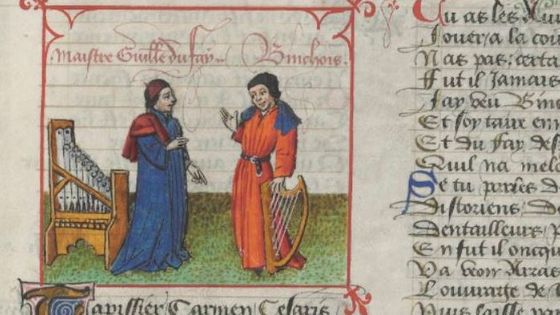 Maistre Guille du fay Binchois.
Tapissier Carmen Cesaris
Tu as les
Jouer a la cou
Nas pas certa
Fut il Jamais
Jay veu Bin
Et soy taire en
Et du fay des
Quil na melo
Se tu parles d
Distoriens d
Dentailleurs p
En fut il oncqu
Va veoir Arras
Louvraige de t
Puis laisse po